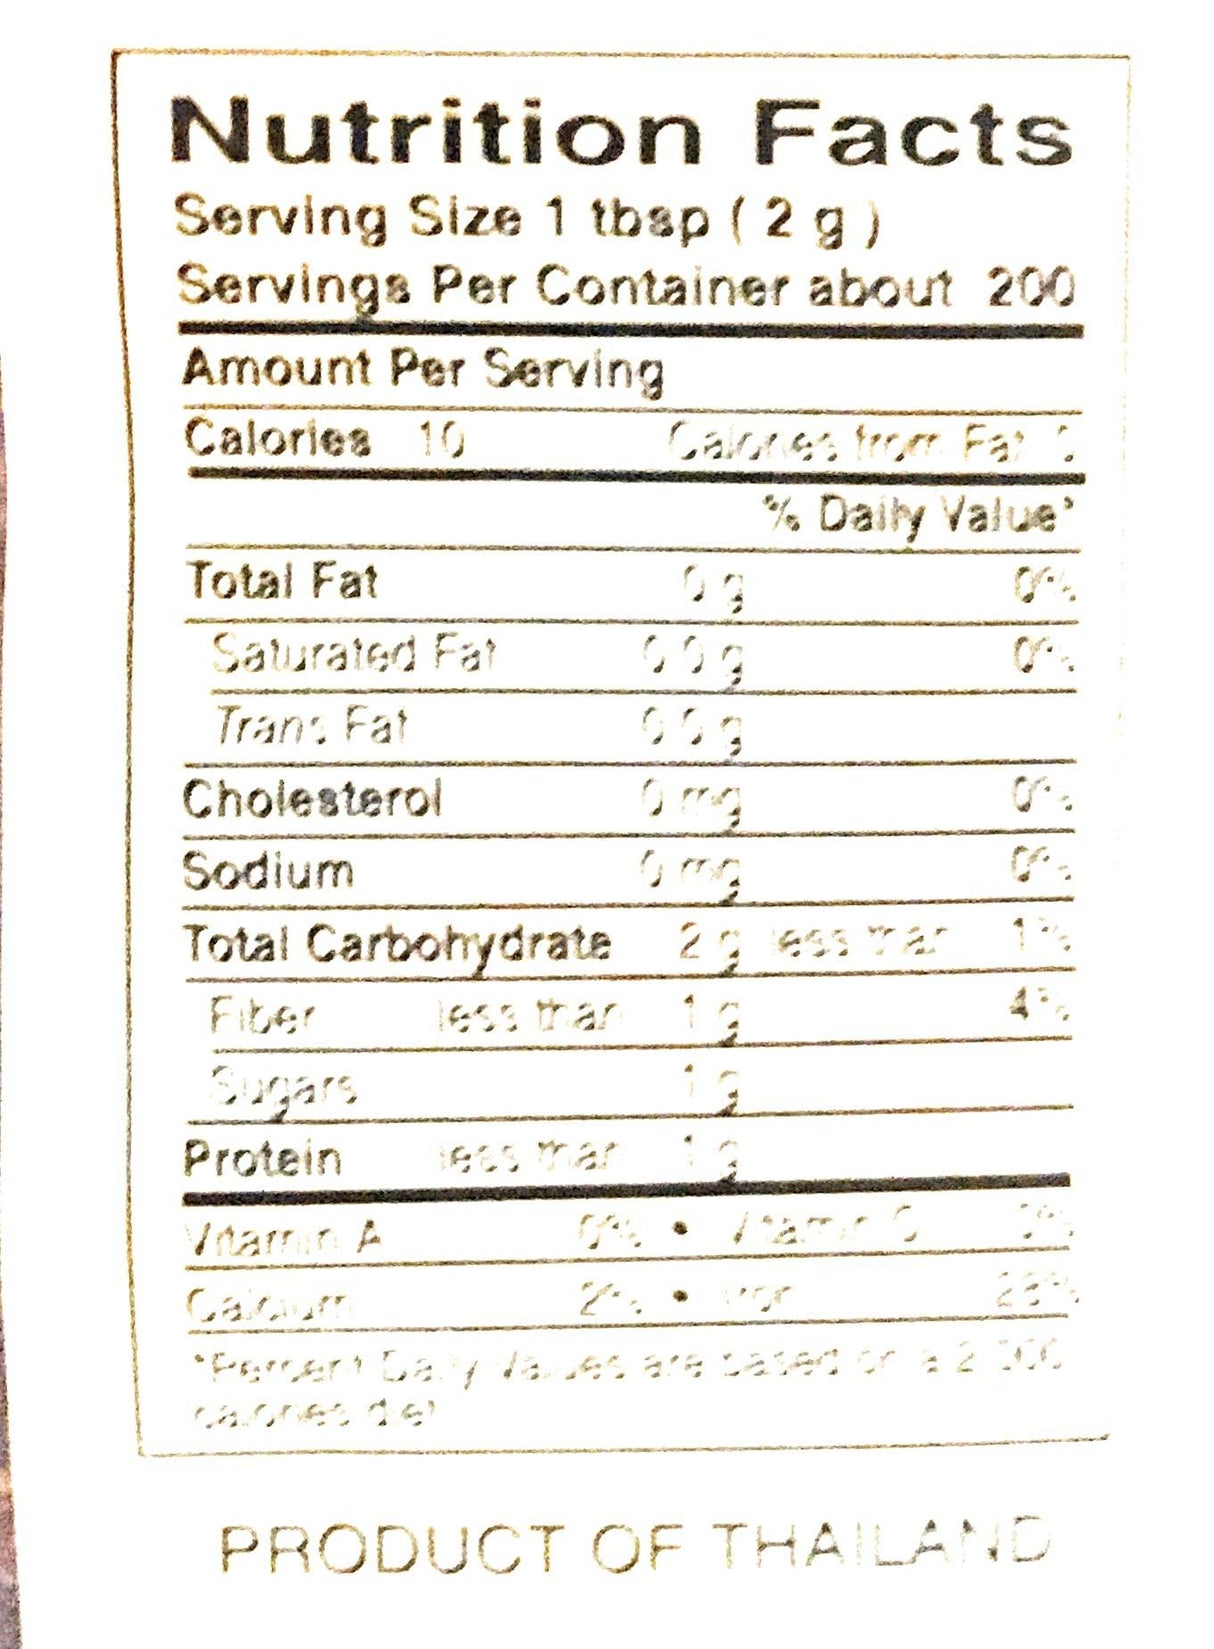 Nutrition Facts
Serving Size 1 tbsp ( 2 g )
Servings Per Container about 200
Amount Per Serving
Calories 10 Calories from Fat 0
% Daily Value*
Total Fat 0 g 0%
Saturated Fat 0.0 g 0%
Trans Fat 0.0 g
Cholesterol 0 mg 0%
Sodium 0 mg 0%
Total Carbohydrate 2 g less than 1%
Fiber less than 1 g 4%
Sugars 1 g
Protein less than 1 g
Vitamin A 0% • Vitamin C 0%
Calcium 2% • Iron
*Percent Daily Values are based on a 2,000
calories diet
PRODUCT OF THAILAND